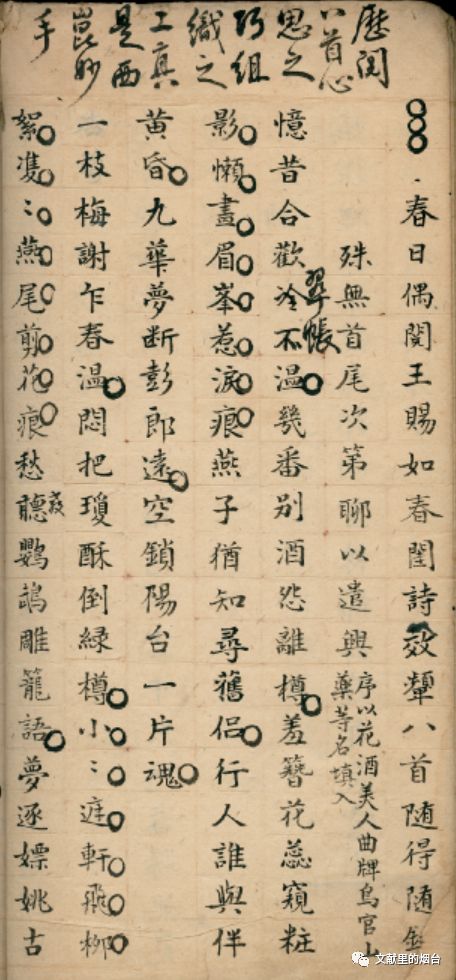 歷閱
八首心
思之
巧組
織之
工真
是西
崑妙
手
春日偶閱王賜如春閨詩效顰八首隨得隨
殊無首尾次第聊以遣興
序以花酒美人曲牌鳥官
藥等名填入
憶昔合歡冷不溫幾番別酒怨離樽羞簪花蕊窺粧
翠帳
影懶畫眉峯惹淚痕燕子猶知尋舊侶行人誰與伴
黃昏九華夢断彭郎遠空鎖陽台一片魂
一枝梅謝乍春溫悶把瓊酥倒綠樽小〻庭軒飛柳
絮雙〻燕尾剪花痕愁聽鸚鵡雕籠語夢逐嫖姚古
文献里的烟台